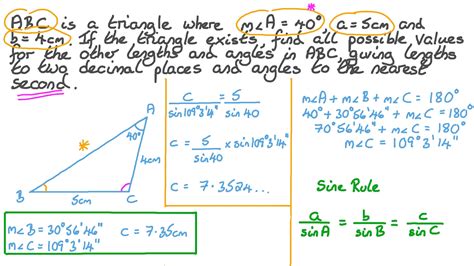 ABC is a triangle where m∠A = 40° a = 5cm and
b = 4cm. If the triangle exists, find all possible values
for the other lengths and angles in ABC giving lengths
to two decimal places and angles to the nearest
second.
*
A
40°
*
4cm
B
5cm
C
m∠B = 30°56'46"
m∠C = 109°3'14"
c = 7.35cm
c/sin109°3'14" = 5/sin40
c = 5/sin40 x sin109°3'14"
c = 7.3524...
m∠A + m∠B + m∠C = 180°
40° + 30°56'46" + m∠C = 180°
70°56'46" + m∠C = 180°
m∠C = 109°3'14"
Sine Rule
a/sinA = b/sinB = c/sinC